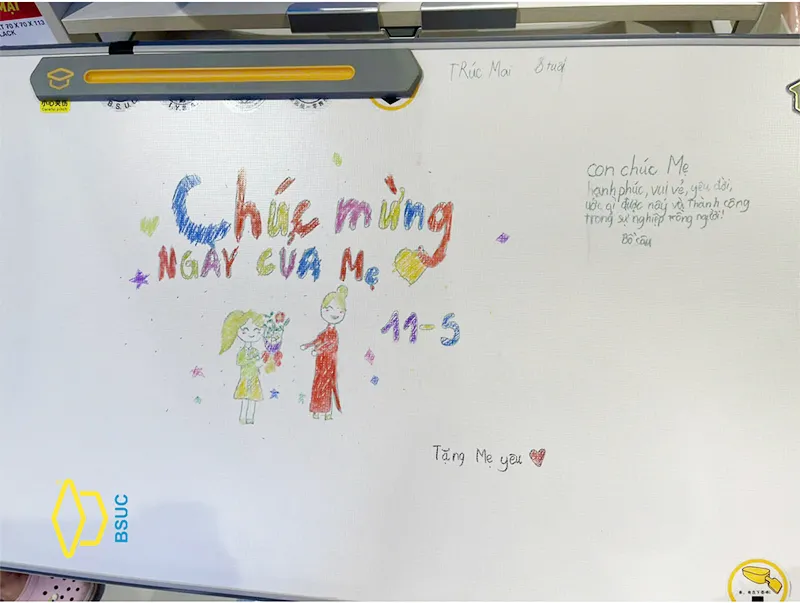 MẠI
T 70 X 70 X 113
LACK
小心夹伤
BSUC
Trúc Mai 8 tuổi
Chúc mừng
NGÀY CỦA Mẹ
11-5
con chúc Mẹ
hạnh phúc, vui vẻ, yêu đời,
ước gì được nấy và thành công
trong sự nghiệp trồng người!
Bồ câu
Tặng Mẹ yêu
BSUC